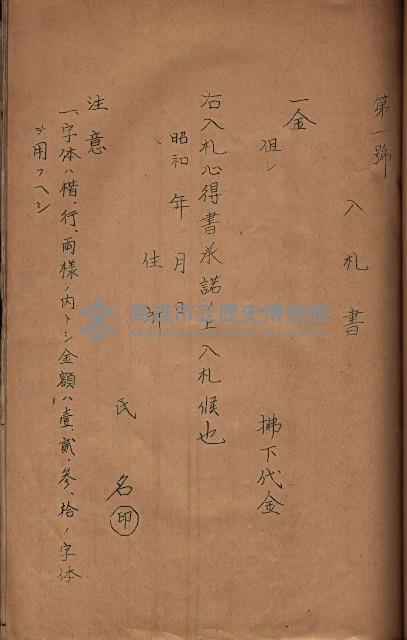 第一號
入札書
一金
但シ 拂下代金
右入札心得書承諾ノ上入札候也
昭和 年 月 日
住所
氏名 印
注意
一、字体ハ楷、行、両様ノ内トシ金額ハ壹、貳、參、拾ノ字体
ヲ用フヘシ
高雄市立歷史博物館